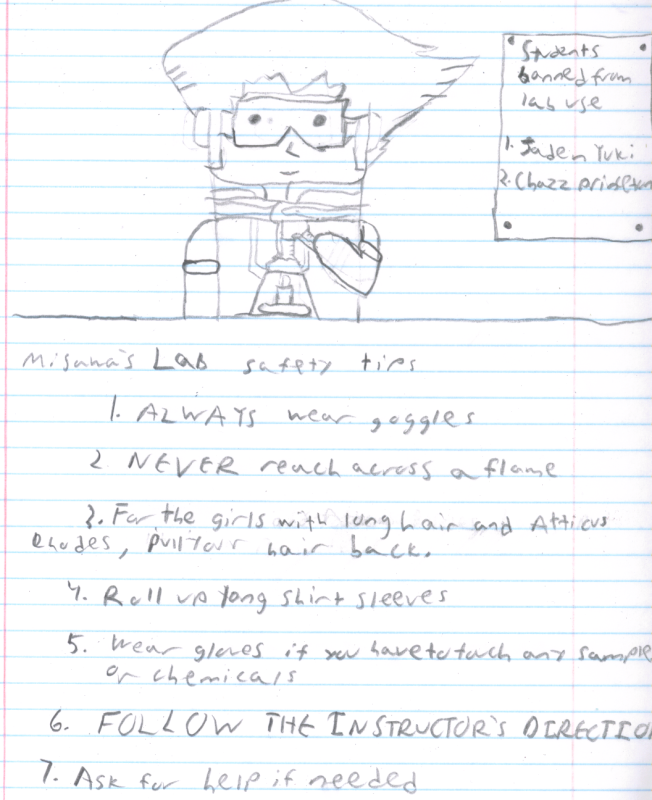 Students
banned from
lab use
1. Jaden Yuki
2. Chazz princeton
Misawa's Lab safety tips
1. ALWAYS wear goggles
2. NEVER reach across a flame
3. For the girls with long hair and Atticus
Rhodes, pull your hair back.
4. Roll up long shirt sleeves
5. Wear gloves if you have to touch any sample
or chemicals
6. FOLLOW THE INSTRUCTOR'S DIRECTIO
7. Ask for help if needed